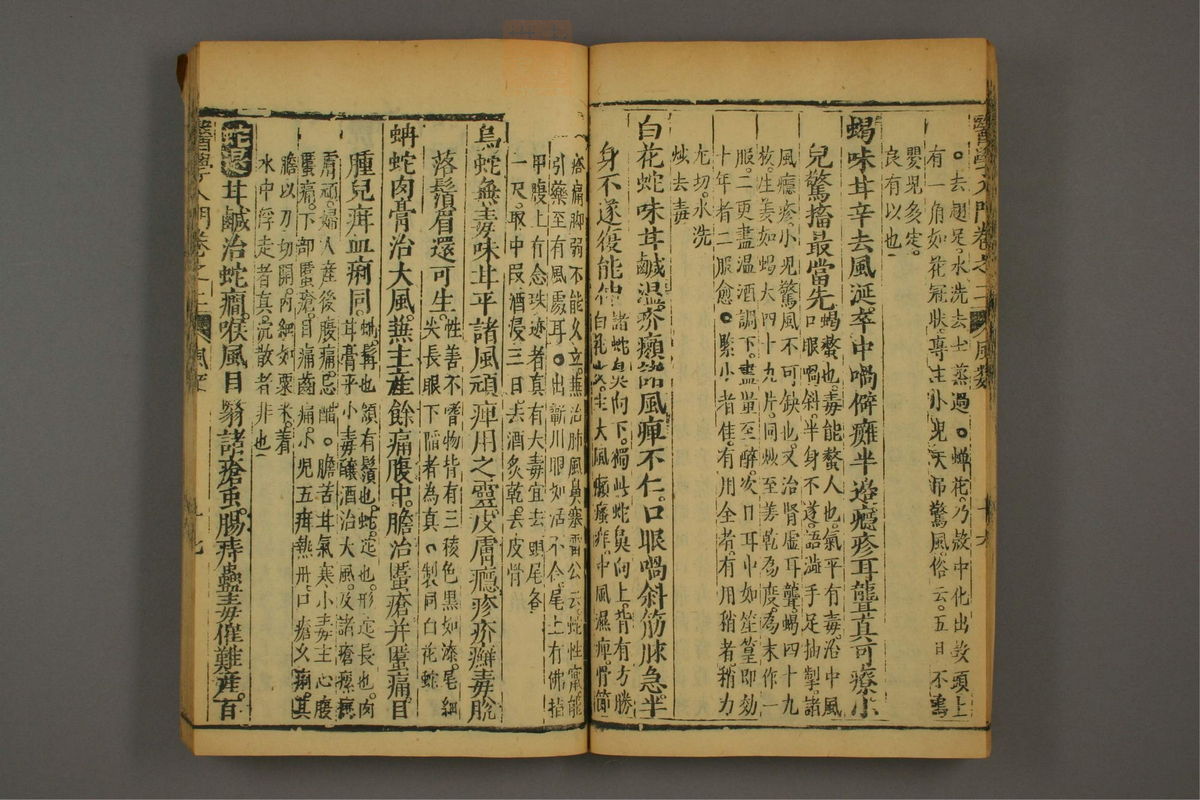 醫學入門卷之二 風類 十六
。去翅足水洗去土蒸過。。蟬花乃殼中化出故頭上
有一角如花冠狀專主小兒天吊驚風俗云五日不鳴
嬰兒多寃
良有以也
蝎味甘辛去風涎卒中喎僻癱半邊癮疹耳聾真可療小
兒驚搐最當先
蝎螫也毒能螫人也氣平有毒治中風
口眼喎斜半身不遂語澁手足抽掣諸
風癮疹小兒驚風不可缺也又治腎虛耳聾蝎四十九
枚生姜如蝎大四十九片同炒至姜乾為度為末作一
服二更盡温酒調下盡量至醉次日耳中如笙篁即効
十年者二服愈。緊小者佳有用全者有用稍者稍力
尤切水洗
炒去毒
白花蛇味甘鹹溫疥癩諸風痺不仁口眼喎斜筋脉急半
身不遂復能伸
諸蛇鼻向下獨此蛇鼻向上背有方勝
白花文主大風癩瘙痒中風濕痺骨節
疼痛脚弱不能久立兼治肺風鼻塞雷公云蛇性竄能
引藥至有風處耳。出蘄川眼如活不合尾上有佛指
甲腹上有念珠跡者真有大毒宜去頭尾各
一尺取中段酒侵三日去酒炙乾去皮骨
烏蛇無毒味甘平諸風頑痺用之靈皮膚癮疹疥癬毒脫
落鬚眉還可生
性善不嗜物背有三稜色黑如漆尾細
尖長眼下陷者為真。製同白花蛇
蚺蛇肉膏治大風兼主產餘痛腹中膽治䘌瘡并䘌痛目
腫兒疳血痢同
蚺髯也頷有鬚也蛇迱也形迱長也肉
甘膏平小毒釀酒治大風及諸瘡瘰
膚頑婦人產後腹痛忌醋。膽苦甘氣寒小毒主心腹
䘌痛下部䘌瘡目痛齒痛小兒五疳熱丹口瘡久痢其
膽以刀切開內細如粟米着
水中浮走者真沉散者非也
甘鹹治蛇癇喉風目翳諸瘡䖝腸痔蠱毒催難產百
醫學入門卷之二 風類 十七